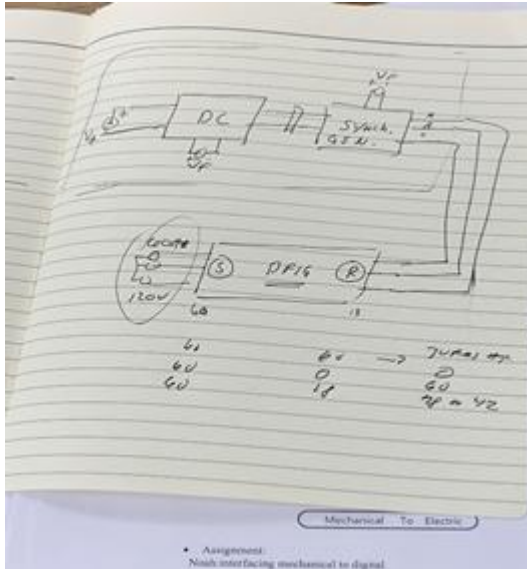 VF
DC
Synch.
GEN.
VF
120V
S
DFIG
R
60
18
60
60
60
60
0
18
0
60
78 or 42
Mechanical To Electric
• Assignment:
Noah interfacing mechanical to digital